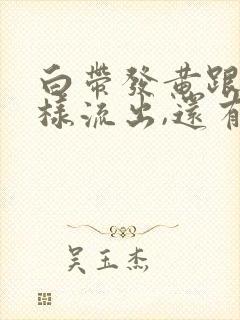 白帶發黃跟
樣流出,還有
吳玉杰